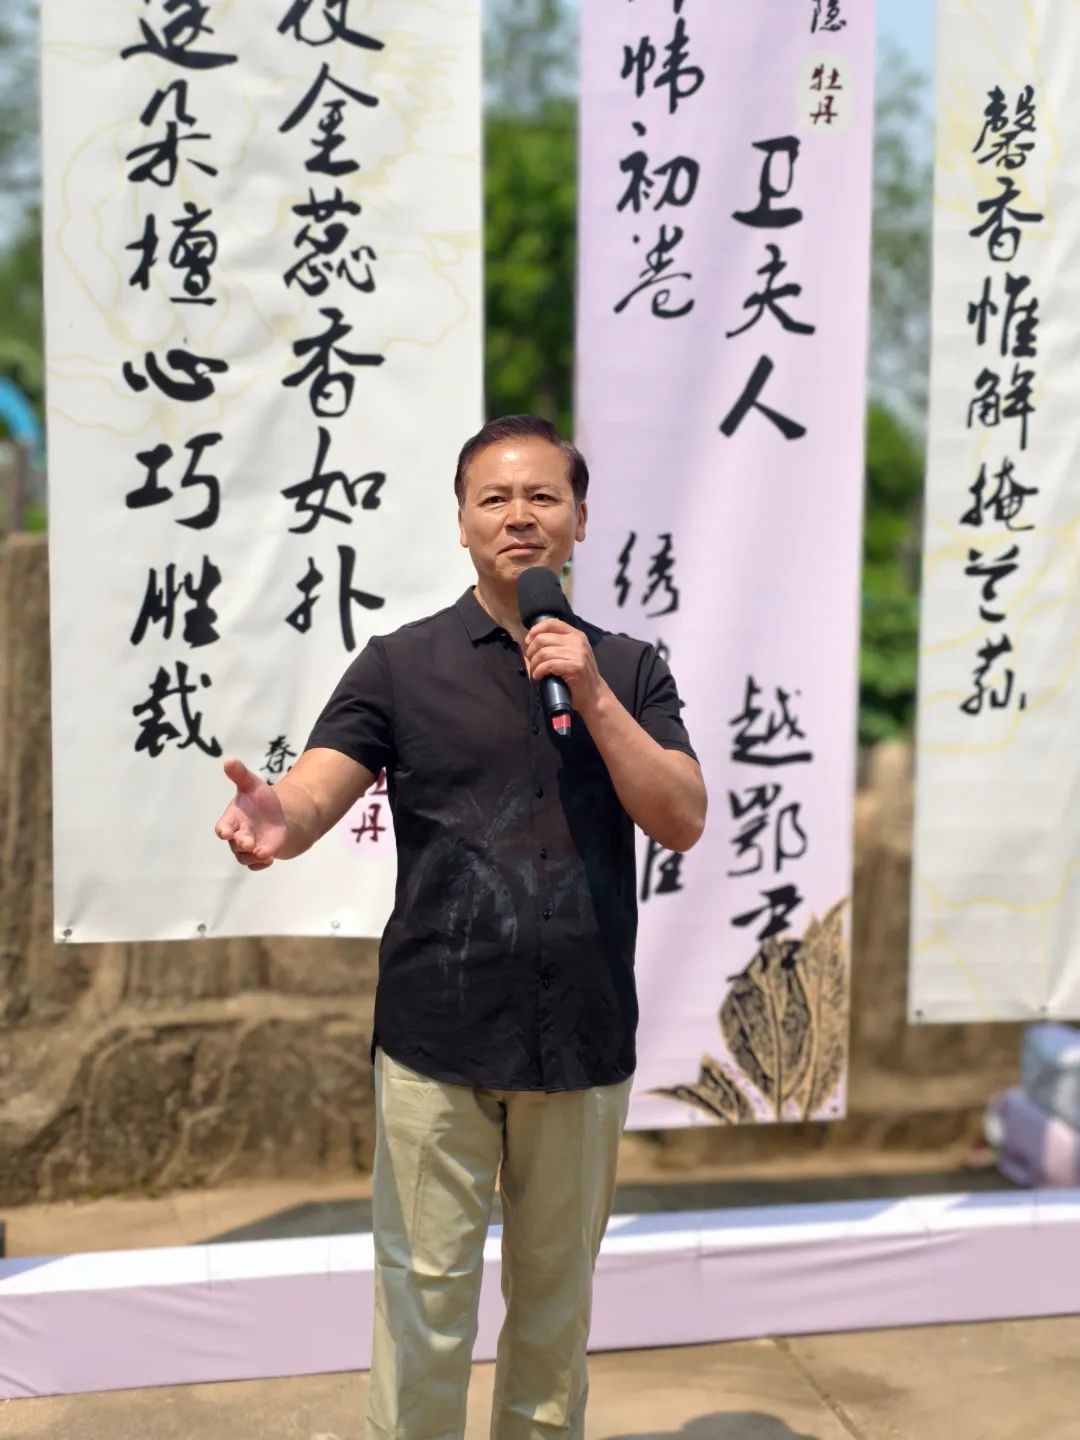 馨香惟解掩兰荪
隐
牡丹
卫夫人
越鄂君
帏初卷
绣
枝金蕊香如扑
逐朵檀心巧胜裁
秦
牡丹